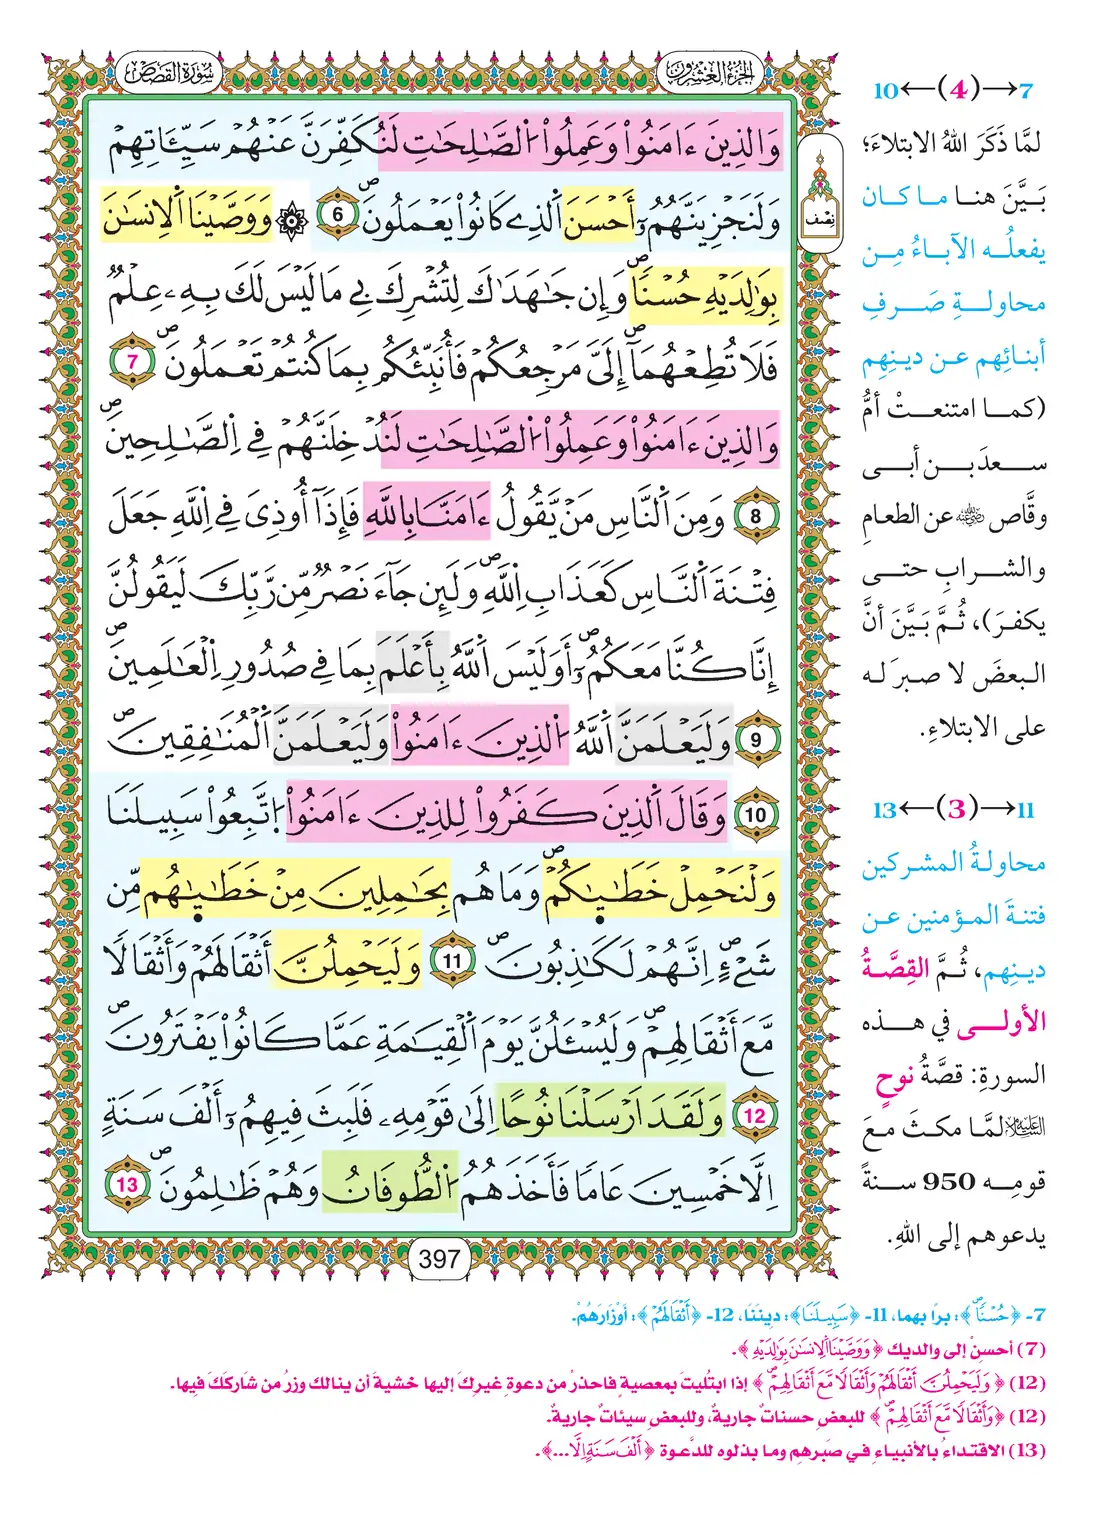 سُورَةُ القَصَصِ
الجُزْءُ العِشْرُونَ
وَالذِينَ ءَامَنُواْ وَعَمِلُواْ اُلصَّٰلِحَٰتِ لَنُكَفِّرَنَّ عَنْهُمْ سَيِّـَٔاتِهِمْ
وَلَنَجْزِيَنَّهُمُۥٓ أَحْسَنَ اَلذِے كَانُواْ يَعْمَلُونَۖ 6 ۞ وَوَصَّيْنَا اَلِانسَٰنَ
بِوَٰلِدَيْهِ حُسْناٗۖ وَإِن جَٰهَدَٰكَ لِتُشْرِكَ بِے مَا لَيْسَ لَكَ بِهِۦ عِلْمٞ
فَلَا تُطِعْهُمَآۖ إِلَيَّ مَرْجِعُكُمْ فَأُنَبِّئُكُم بِمَا كُنتُمْ تَعْمَلُونَۖ 7
وَالذِينَ ءَامَنُواْ وَعَمِلُواْ اُلصَّٰلِحَٰتِ لَنُدْخِلَنَّهُمْ فِے اِلصَّٰلِحِينَۖ
8 وَمِنَ اَلنَّاسِ مَنْ يَّقُولُ ءَامَنَّا بِاللَّهِ فَإِذَآ أُوذِيَ فِے اِللَّهِ جَعَلَ
فِتْنَةَ اَلنَّاسِ كَعَذَابِ اِللَّهِۖ وَلَئِن جَآءَ نَصْرٞ مِّن رَّبِّكَ لَيَقُولُنَّ
إِنَّا كُنَّا مَعَكُمُۥٓۖ أَوَلَيْسَ اَللَّهُ بِأَعْلَمَ بِمَا فِے صُدُورِ اِلْعَٰلَمِينَۖ
9 وَلَيَعْلَمَنَّ اَللَّهُ اُلذِينَ ءَامَنُواْ وَلَيَعْلَمَنَّ اَلْمُنَٰفِقِينَۖ
10 وَقَالَ اَلذِينَ كَفَرُواْ لِلذِينَ ءَامَنُواْ اُتَّبِعُواْ سَبِيلَنَا
وَلْنَحْمِلْ خَطَٰيَٰكُمْۖ وَمَا هُم بِحَٰمِلِينَ مِنْ خَطَٰيَٰهُم مِّن
شَےْءٍۖ اِنَّهُمْ لَكَٰذِبُونَۖ 11 وَلَيَحْمِلُنَّ أَثْقَالَهُمْ وَأَثْقَالاٗ
مَّعَ أَثْقَالِهِمْۖ وَلَيُسْـَٔلُنَّ يَوْمَ اَلْقِيَٰمَةِ عَمَّا كَانُواْ يَفْتَرُونَۖ
12 وَلَقَدَ اَرْسَلْنَا نُوحاً اِلَىٰ قَوْمِهِۦ فَلَبِثَ فِيهِمُۥٓ أَلْفَ سَنَةٍ
اِلَّا خَمْسِينَ عَاماٗ فَأَخَذَهُمُ اُلطُّوفَانُ وَهُمْ ظَٰلِمُونَۖ 13
397
نِصْف
10←(4)→7
لمَّا ذَكَرَ اللهُ الابتلاءَ؛
بَيَّنَ هنا ما كان
يفعلُه الآباءُ مِن
محاولةِ صَرفِ
أبنائِهم عن دينِهِم
(كما امتنعتْ أمُّ
سعدَ بن أبي
وقَّاص ﵁ عن الطعامِ
والشرابِ حتى
يكفرَ)، ثُمَّ بَيَّنَ أنَّ
البعضَ لا صبرَ له
على الابتلاءِ.
13←(3)→11
محاولةُ المشركين
فتنةَ المؤمنين عن
دينِهم، ثُمَّ القِصَّةُ
الأولى في هذه
السورة: قصَّةُ نوحٍ
﵇ لمَّا مكثَ معَ
قومِه 950 سنةً
يدعوهم إلى اللهِ.
7- ﴿حُسْناٗۖ﴾: برا بهما، 11- ﴿سَبِيلَنَا﴾: ديننَا، 12- ﴿أَثْقَالَهُمْ﴾: أَوْزَارَهُمْ.
(7) أحسِنْ إلى والديك ﴿وَوَصَّيْنَا اَلِانسَٰنَ بِوَٰلِدَيْهِ﴾.
(12) ﴿وَلَيَحْمِلُنَّ أَثْقَالَهُمْ وَأَثْقَالاٗ مَّعَ أَثْقَالِهِمْۖ﴾ إذا ابتُليتَ بمعصيةٍ فاحذرْ من دعوةِ غيرِكَ إليها خشيةَ أن ينالك وزرُ من شاركَكَ فيها.
(12) ﴿وَأَثْقَالاٗ مَّعَ أَثْقَالِهِمْۖ﴾ للبعضِ حسناتٌ جاريةٌ، وللبعضِ سيئاتٌ جاريةٌ.
(13) الاقتداءُ بالأنبياءِ في صَبرهم وما بذلوه للدَّعوة ﴿أَلْفَ سَنَةٍ اِلَّا...﴾.